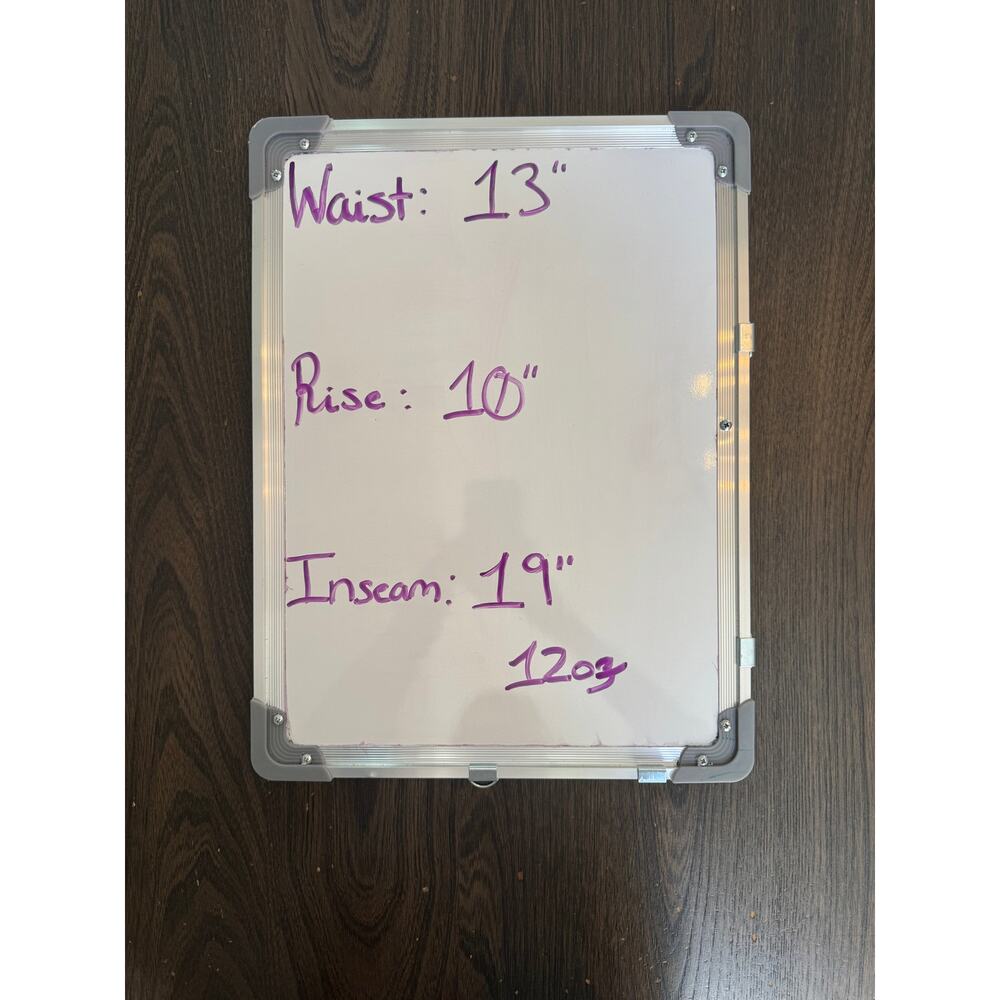 Waist: 13"
Rise: 10"
Inseam: 19"
12oz